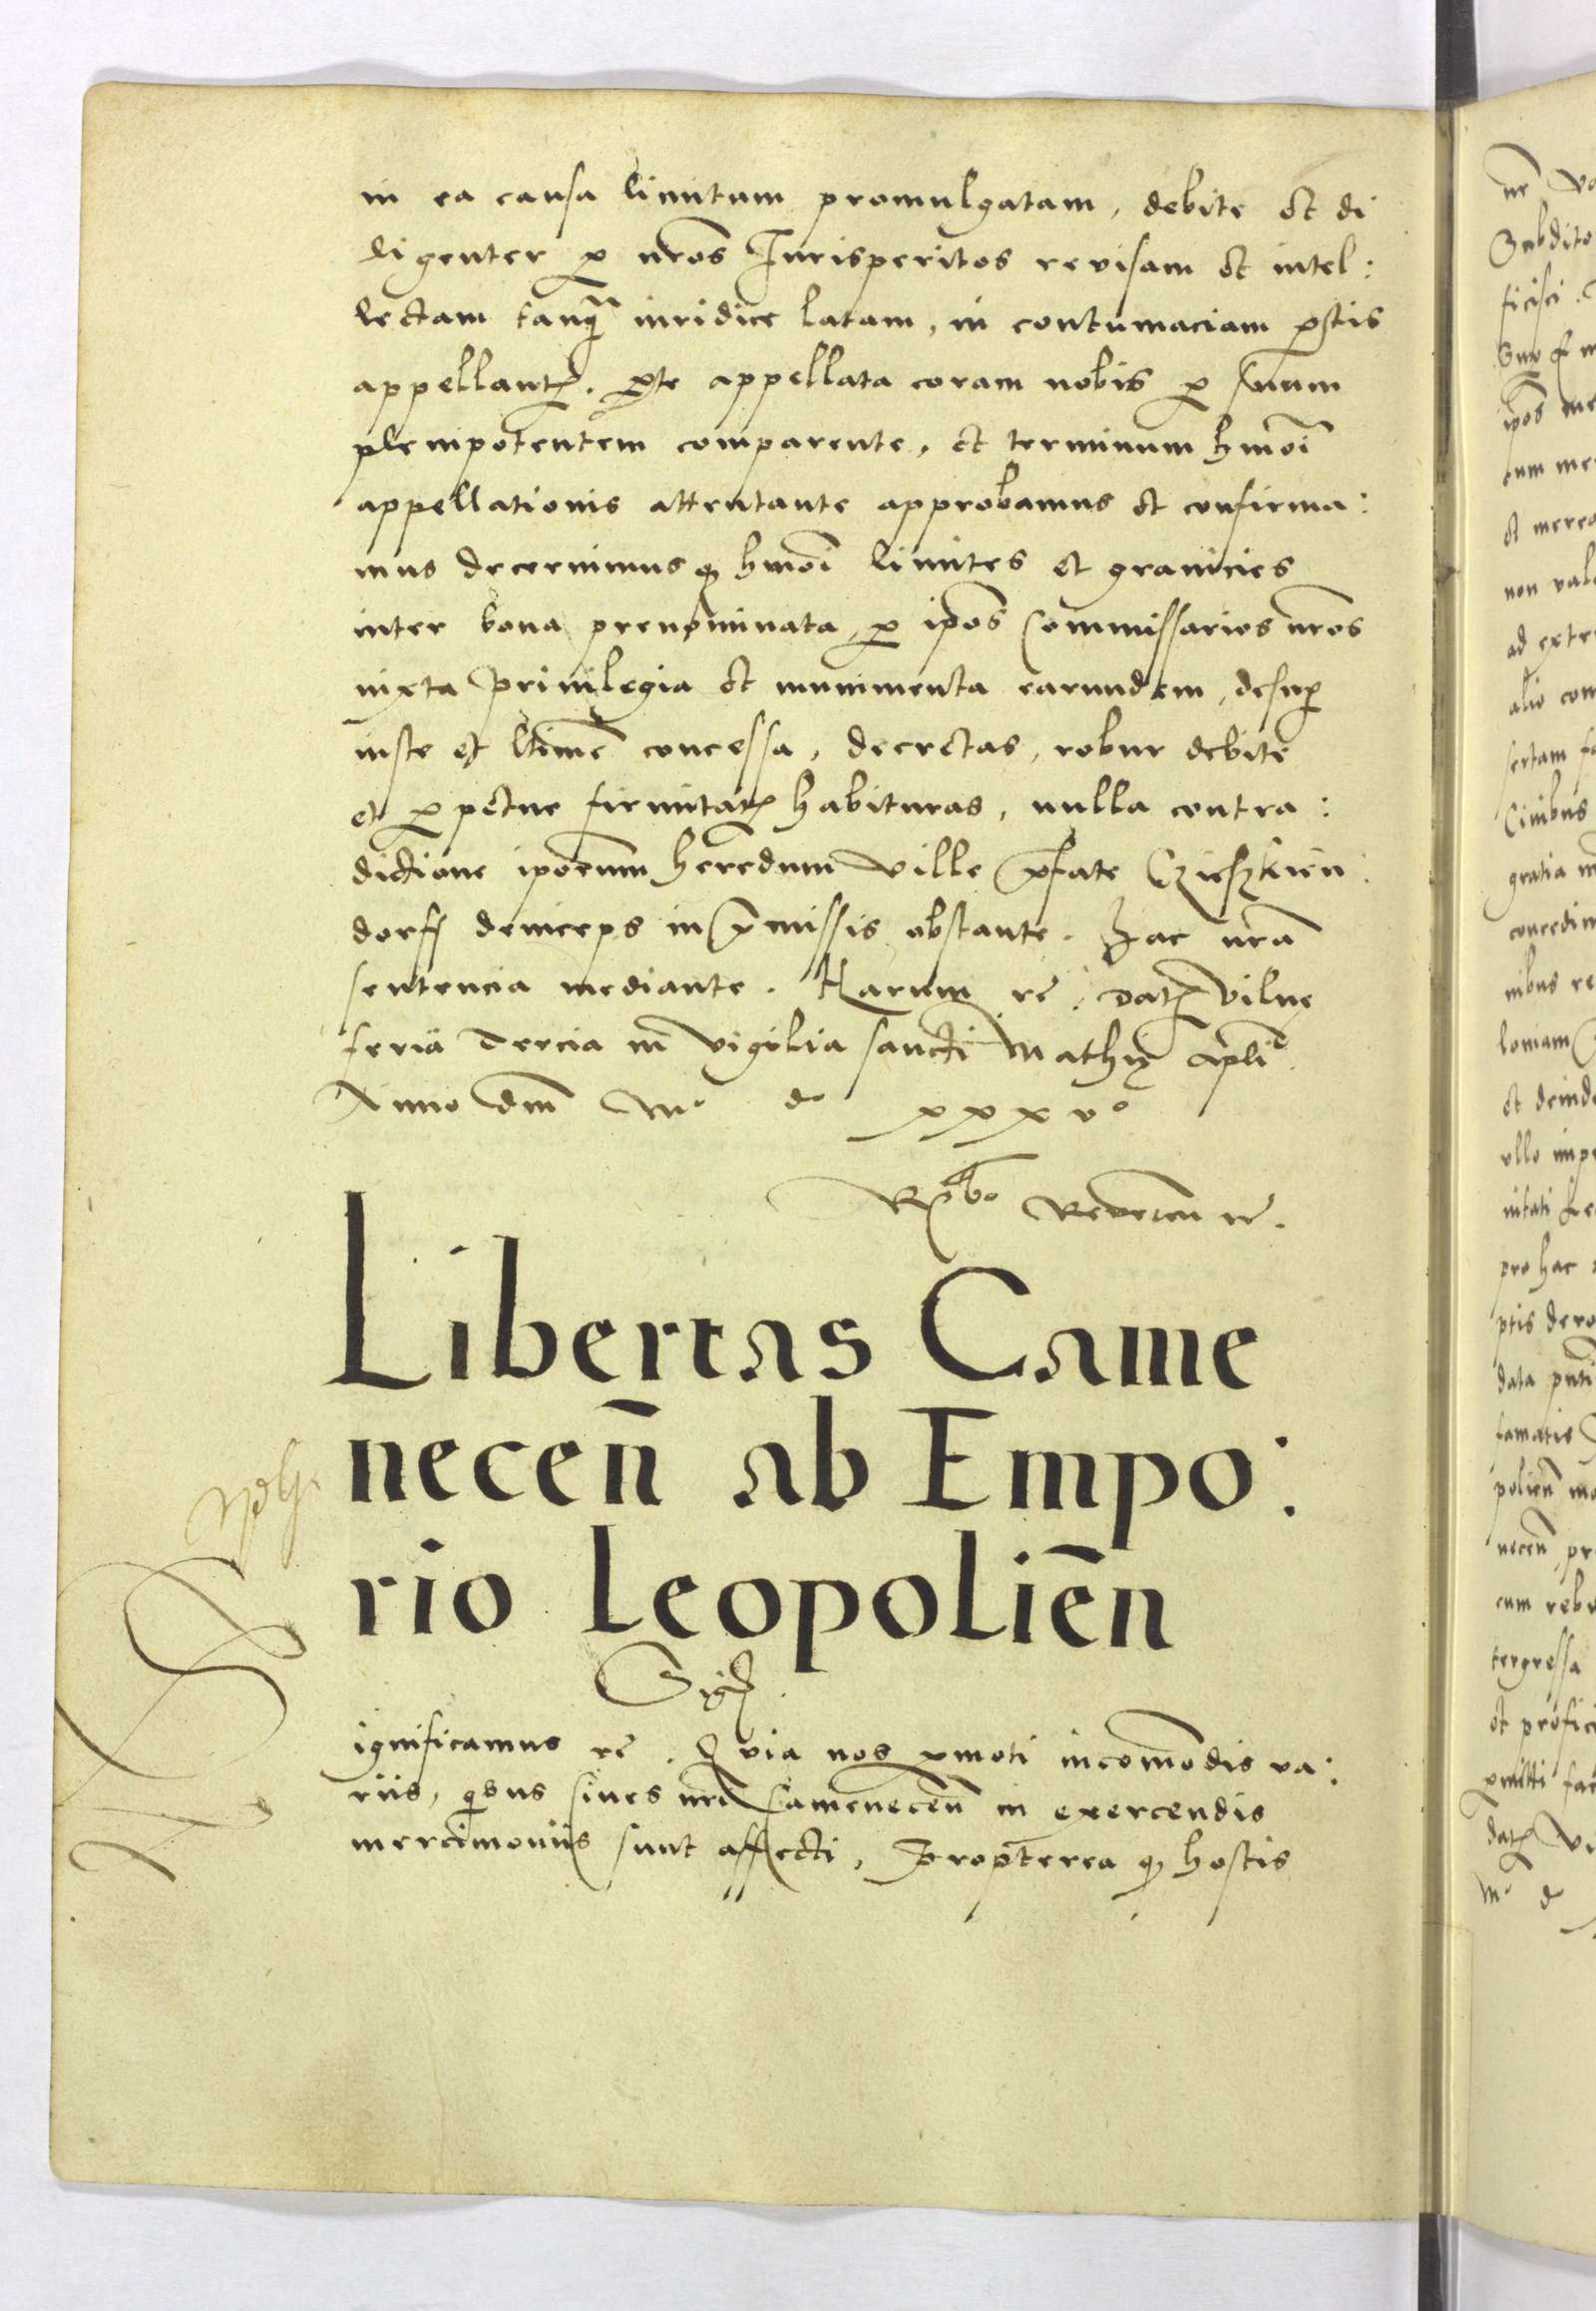 in ea causa limitum promulgatam, debite et di
ligenter p nr̄os Jurisperitos revisam et intel:
lectam tanq̄ iuridice latam, in contumaciam p̄tis
appellant̄. p̄te appellata coram nobis p suum
plenipotentem comparente, et terminum hmōi
appellationis attentante approbamus et confirma:
mus decernimus q hmōi limites et granicies
inter bona prenominata p ip̄os Commissarios nr̄os
iuxta privilegia et munimenta earundem, desup
iuste et ltīme concessa, decretas, robur debite
et ppetue firmitat̄ habituras, nulla contra:
dictione ip̄orum heredum ville p̄fate
dorff deinceps in p̄missis obstante. Hac nr̄a
sentencia mediante. Harum rē. Dat̄ Vilne
feria Tercia in vigilia sancti Mathy apl̄i
Anno dnī Mo do xxxvo
Rdēm rē.
Libertas Came
necen̄ ab Empo:
rio Leopolien̄
Sig
ignificamus rē. Quia nos p̄moti incom̄odis va:
riis, qibus Cives nr̄i Camenecen̄ in exercendis
mercimoniis sunt affecti, Propterea q hostis